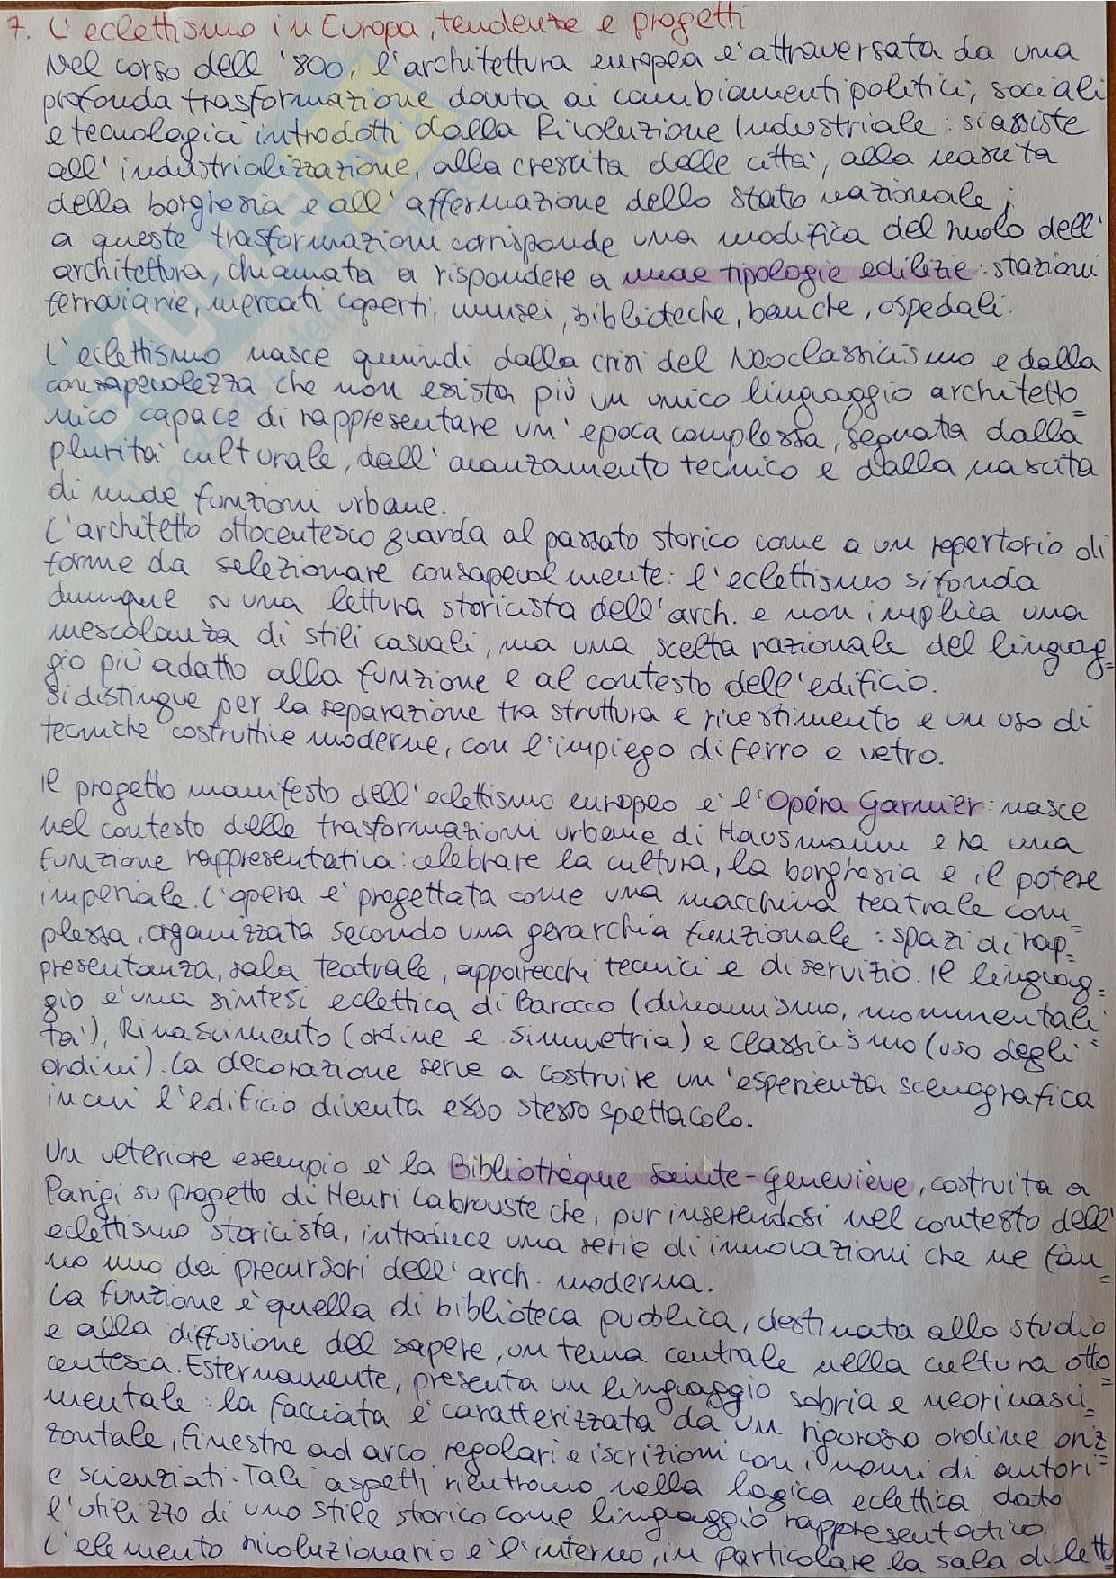 7. L'eclettismo in Europa, tendenze e progetti
Nel corso dell'800, l'architettura europea è attraversata da una
profonda trasformazione dovuta ai cambiamenti politici, sociali
e tecnologici introdotti dalla Rivoluzione Industriale: si assiste
all'industrializzazione, alla crescita delle città, alla nascita
della borghesia e all'affermazione dello stato nazionale;
a queste trasformazioni corrisponde una modifica del ruolo dell'
architettura, chiamata a rispondere a nuove tipologie edilizie: stazioni
ferroviarie, mercati coperti, musei, biblioteche, banche, ospedali.
L'eclettismo nasce quindi dalla crisi del Neoclassicismo e dalla
consapevolezza che non esista più un unico linguaggio architetto=
nico capace di rappresentare un'epoca complessa, segnata dalla
plurità culturale, dall'avanzamento tecnico e dalla nascita
di nuove funzioni urbane.
L'architetto ottocentesco guarda al passato storico come a un repertorio di
forme da selezionare consapevolmente: l'eclettismo si fonda
dunque su una lettura storicista dell'arch. e non implica una
mescolanza di stili casuali, ma una scelta razionale del linguag=
gio più adatto alla funzione e al contesto dell'edificio.
Si distingue per la separazione tra struttura e rivestimento e un uso di
tecniche costruttive moderne, con l'impiego di ferro e vetro.
Il progetto manifesto dell'eclettismo europeo è l'Opéra Garnier: nasce
nel contesto delle trasformazioni urbane di Hausmann e ha una
funzione rappresentativa: celebrare la cultura, la borghesia e il potere
imperiale. L'opera è progettata come una macchina teatrale com=
plessa, organizzata secondo una gerarchia funzionale: spazi di rap=
presentanza, sala teatrale, apparecchi tecnici e di servizio. Il linguag=
gio è una sintesi eclettica di Barocco (dinamismo, monumentali=
tà), Rinascimento (ordine e simmetria) e classicismo (uso degli
ordini). La decorazione serve a costruire un'esperienza scenografica
in cui l'edificio diventa esso stesso spettacolo.
Un ulteriore esempio è la Bibliothèque Sainte-Geneviève, costruita a
Parigi su progetto di Henri Labrouste che, pur inserendosi nel contesto dell'
eclettismo storicista, introduce una serie di innovazioni che ne fan=
no uno dei precursori dell'arch. moderna.
La funzione è quella di biblioteca pubblica, destinata allo studio
e alla diffusione del sapere, un tema centrale nella cultura otto=
centesca. Esternamente, presenta un linguaggio sobria e neorinasci=
mentale: la facciata è caratterizzata da un rigoroso ordine oriz=
zontale, finestre ad arco regolari e iscrizioni con i nomi di autori
e scienziati. Tali aspetti rientrano nella logica eclettica, dato
l'utilizzo di uno stile storico come linguaggio rappresentativo.
L'elemento rivoluzionario è l'interno, in particolare la sala di lett